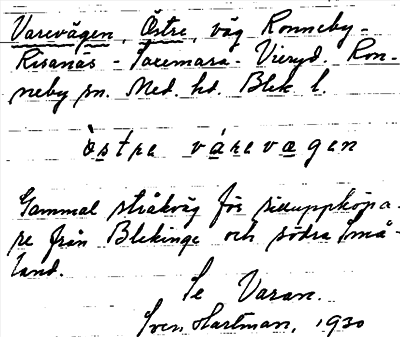 Varevägen, Östre, väg Ronneby-
Risanäs - Tararmara - Vieryd. Ron-
neby sn. Med. hd. Blek. l.
òstre várevægen
Gammal stråkväg för silluppköpa-
re från Blekinge och södra Små-
land.
Se Varan.
Sven Hartman, 1930